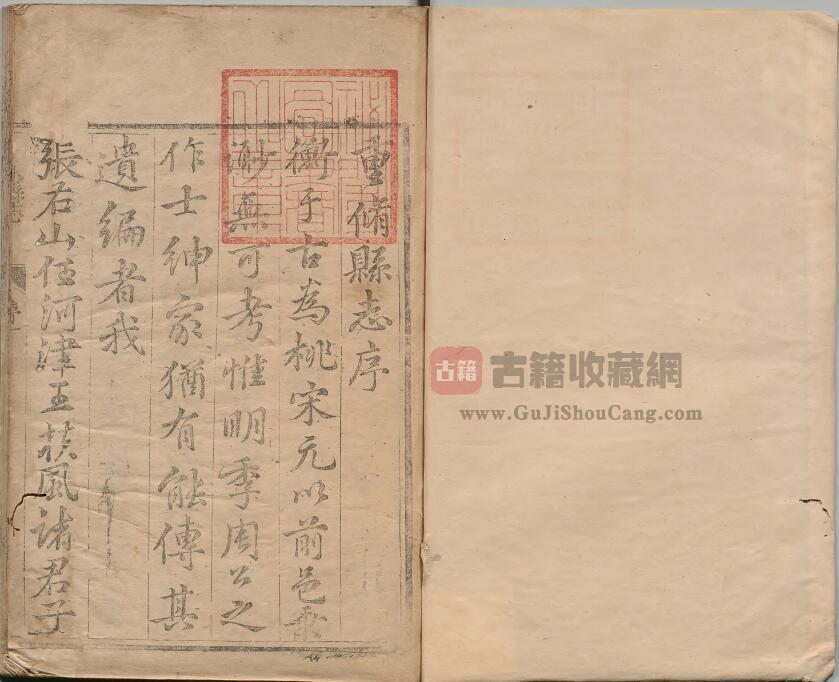 重脩縣志序
衡于古為桃宋元以前邑乘
渺無可考惟明季周公之
作士紳家猶有能傳其
遺編者我
張右山任河津王扶風諸君子
古籍 古籍收藏網
www.GuJiShouCang.com